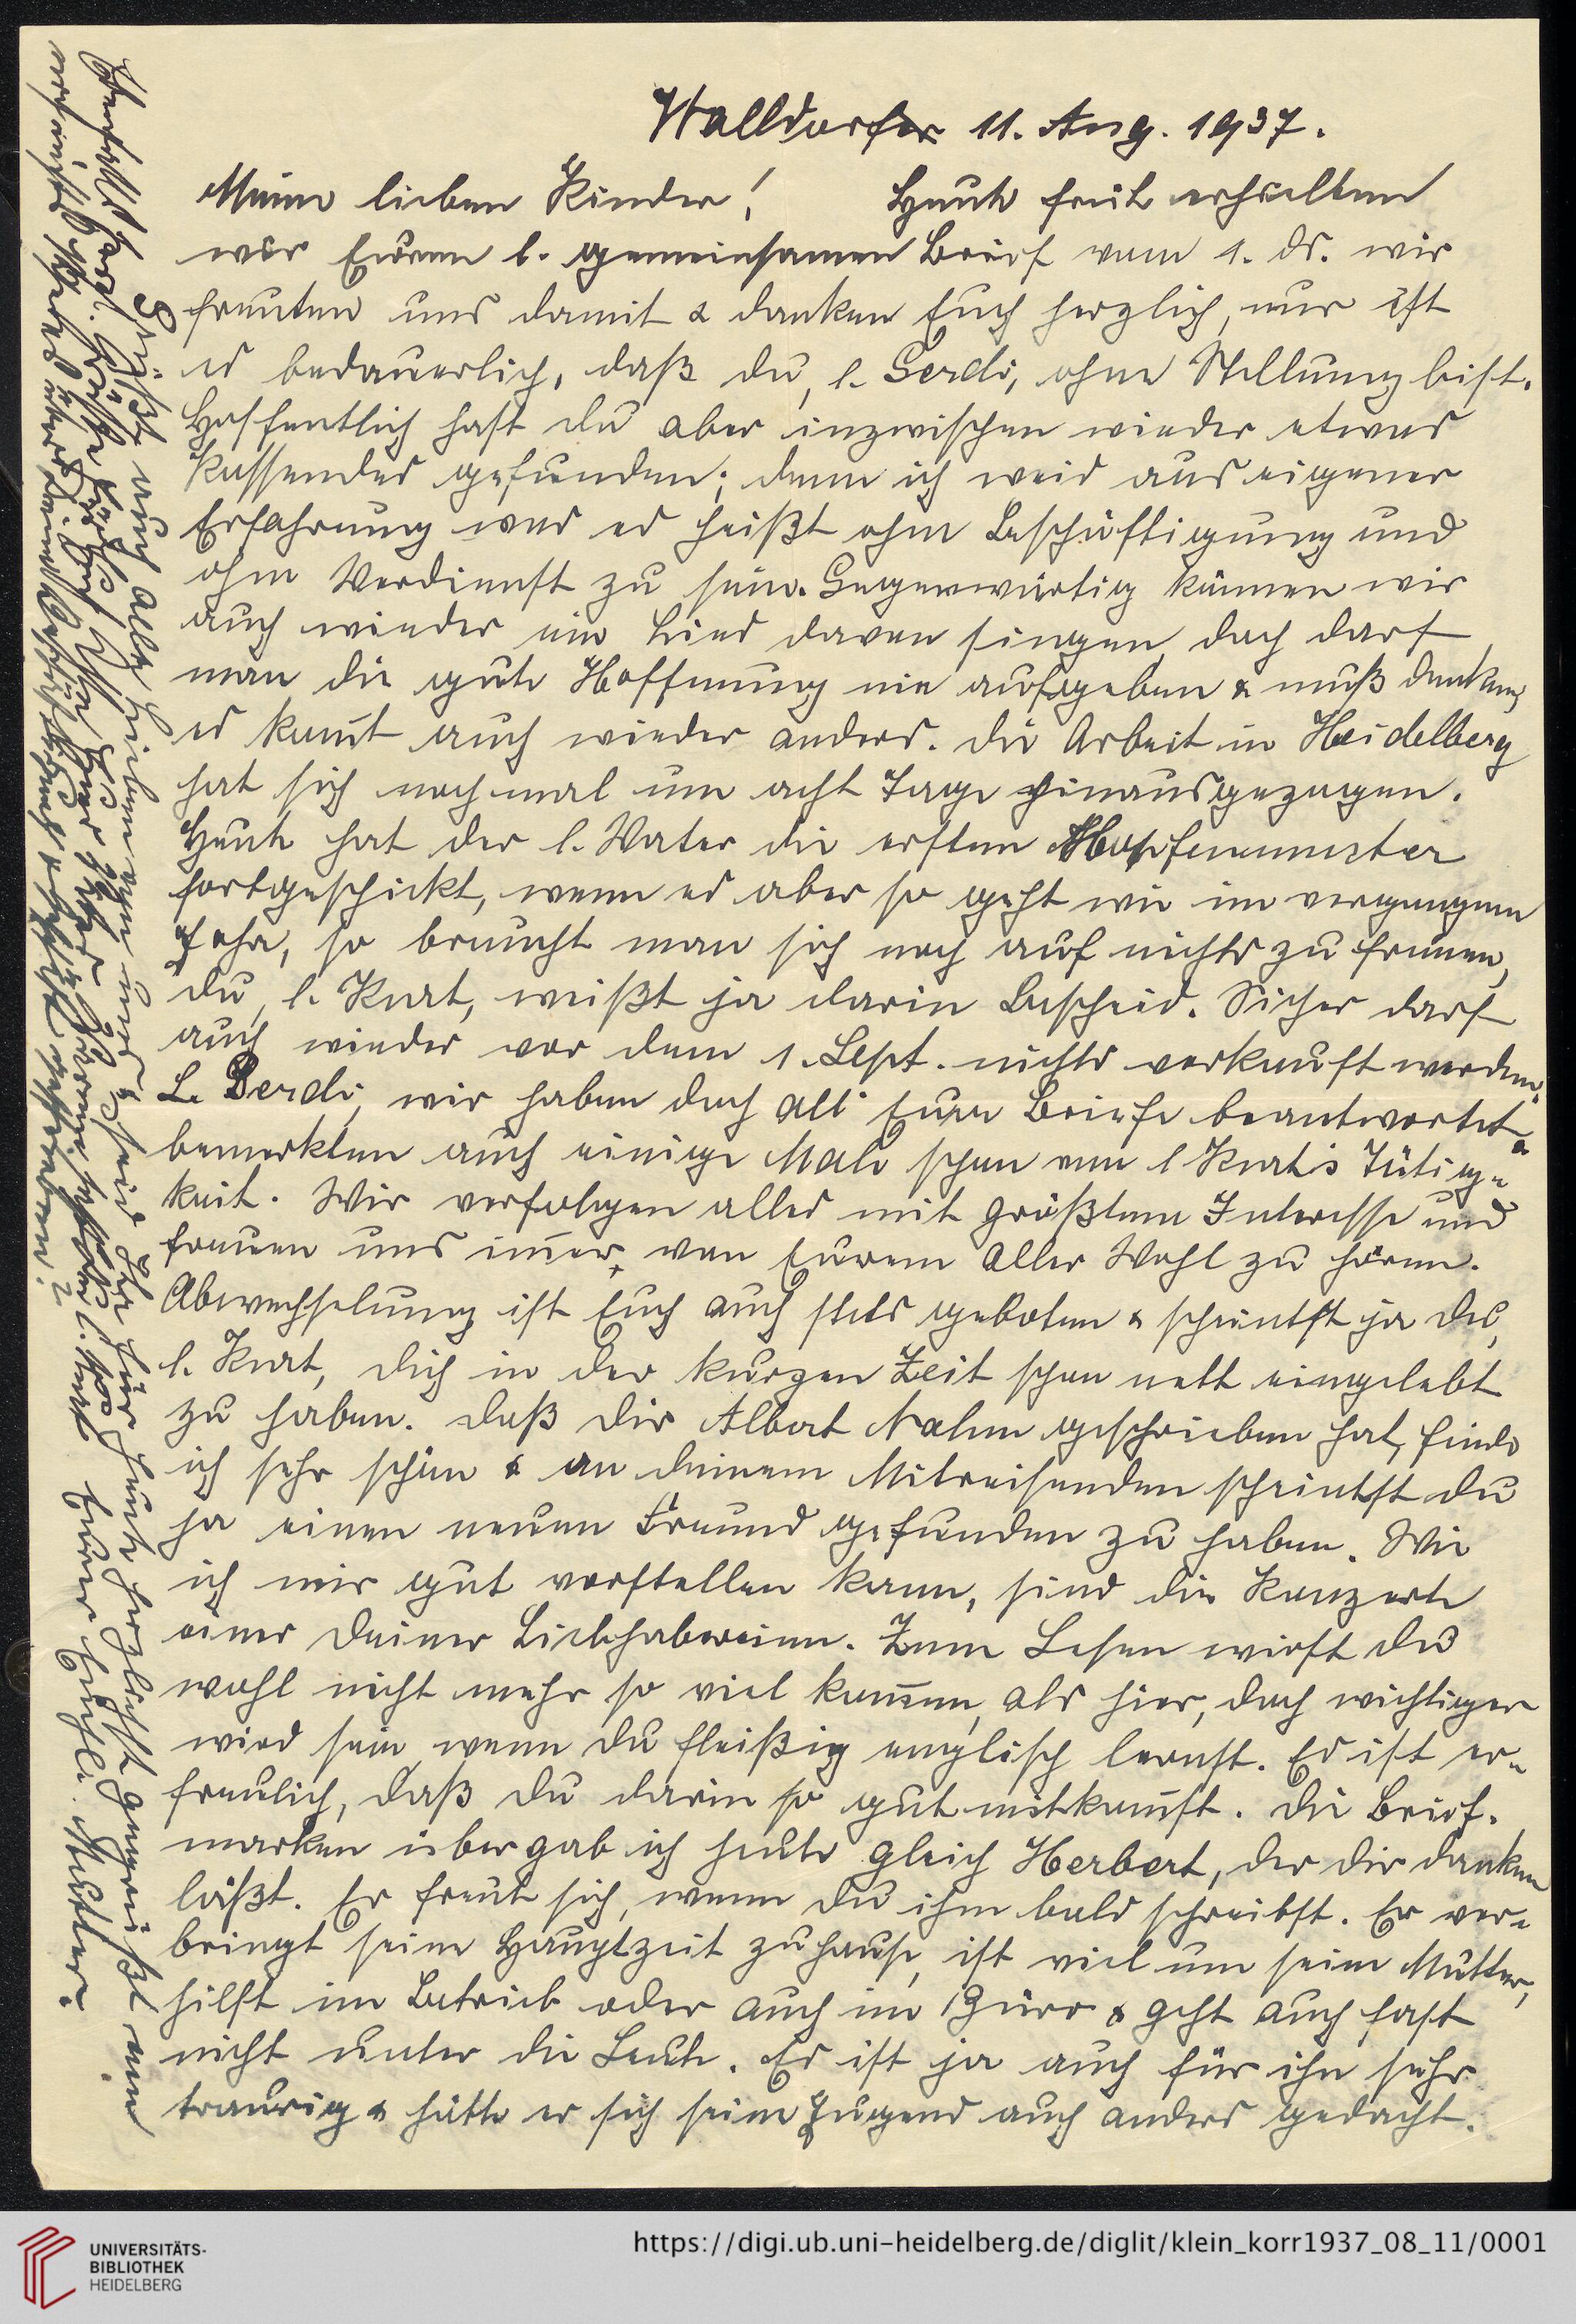 Walldorf, 11. Aug. 1937.
Meine lieben Kinder! Heute früh erhielten
wir Euren l. gemeinsamen Brief vom 1. ds. wir
freuten uns damit & danken Euch herzlich, nur ist
es bedauerlich, daß du, l. Gerdi, ohne Stellung bist.
Hoffentlich hast du aber inzwischen wieder etwas
Passendes gefunden; denn ich weis aus eigener
Erfahrung was es heißt ohne Beschäftigung und
ohne Verdienst zu sein. Gegenwärtig können wir
auch wieder ein Lied davon singen, doch darf
man die gute Hoffnung nie aufgeben & muß denken,
es kom̅t auch wieder anders. Die Arbeit in Heidelberg
hat sich nochmal um acht Tage hinausgezogen.
Heute hat der l. Vater die ersten Hopfenmuster
fortgeschickt, wenn es aber so geht wie im vergangenen
Jahr, so braucht man sich noch auf nichts zu freuen,
du, l. Kurt, weißt ja darin Bescheid. Sicher darf
auch wieder vor dem 1. Sept. nichts verkauft werden.
L. Gerdi, wir haben doch all' Eure Briefe beantwortet &
bemerkten auch einige Male schon von l Kurt's Tätig-
keit. Wir verfolgen alles mit größtem Interesse und
freuen uns im̅er, von Eurem Aller Wohl zu hören.
Abwechselung ist Euch auch stets geboten & scheintst ja du,
l. Kurt, dich in der kurzen Zeit schon nett eingelebt
zu haben. Daß dir Albert Nahm geschrieben hat, finde
ich sehr schön & an deinem Mitreisenden scheintst du
ja einen neuen Freund gefunden zu haben. Wie
ich mir gut vorstellen kann, sind die Konzerte
einer deiner Liebhabereien. Zum Lesen wirst du
wohl nicht mehr so viel kom̅en, als hier, doch wichtiger
wird sein, wenn du fleißig englisch lernst. Es ist er-
freulich, daß du darin so gut mitkom̅st. Die Brief-
marken übergab ich heute gleich Herbert, der dir danken
läßt. Er freut sich, wenn du ihm bald schreibst. Er ver-
bringt seine Hauptzeit zuhause, ist viel um seine Mutter,
hilft im Betrieb oder auch im Büro & geht auch fast
nicht unter die Leute. Es ist ja auch für ihn sehr
traurig & hätte er sich seine Jugend auch anders gedacht.
Grüßt auch alle Lieben und seid Ihr für heute herzlichst gegrüßt von
Eurer Euchl. Mutter.
UNIVERSITÄTS-
BIBLIOTHEK
HEIDELBERG
https://digi.ub.uni-heidelberg.de/diglit/klein_korr1937_08_11/0001